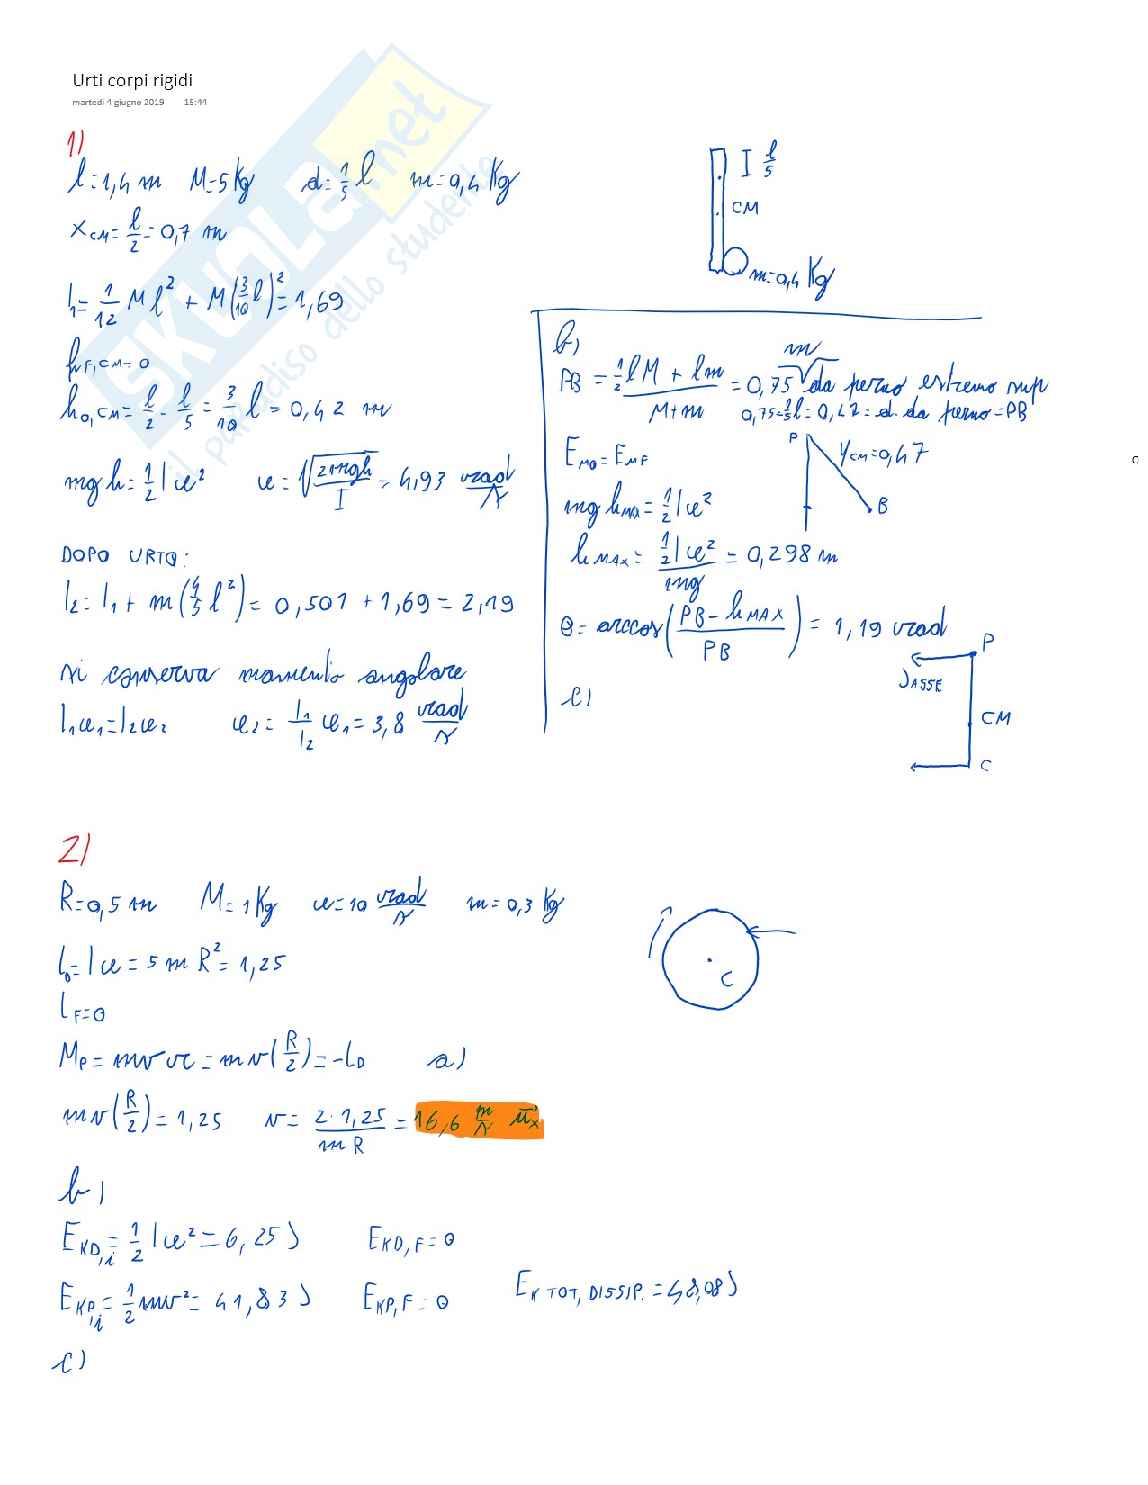 Urti corpi rigidi
martedì 4 giugno 2019 15:44
1)
l=1,4 m M=5 Kg d=1/5 l m=0,4 Kg
x_CM = l/2 = 0,7 m
I_1 = 1/12 M l² + M(3/10 l)² = 1,69
h_F,CM = 0
h_0,CM = l/2 - l/5 = 3/10 l = 0,42 m
mgh = 1/2 I ω² ω = √(2mgh/I) = 4,93 rad/s
DOPO URTO:
I_2 = I_1 + m(4/5 l²) = 0,501 + 1,69 = 2,19
si conserva momento angolare
I_1ω_1 = I_2ω_2 ω_2 = I_1/I_2 ω_1 = 3,8 rad/s
I l/5
CM
m=0,4 Kg
b)
PB = (1/2 l M + l m)/(M+m) = 0,75 m da perno estremo sup
0,75 - 1/5 l = 0,47 = d. da perno = PB
E_M0 = E_MF
P
y_CM = 0,47
B
mg h_MAX = 1/2 I ω²
h_MAX = (1/2 I ω²)/mg = 0,298 m
θ = arccos((PB - h_MAX)/PB) = 1,19 rad
c)
P
J_ASSE
CM
C
2)
R=0,5 m M=1 Kg ω=10 rad/s m=0,3 Kg
L_0 = I ω = 5 m R² = 1,25
L_F = 0
C
M_P = mvr = mv(R/2) = -L_D a)
mv(R/2) = 1,25 v = (2·1,25)/(mR) = 16,6 m/s u_x
b)
E_KD,i = 1/2 I ω² = 6,25 J E_KD,F = 0
E_KP,i = 1/2 mv² = 41,83 J E_KP,F = 0 E_K TOT, DISSIP. = 48,08 J
c)
SKUOLA.net
il paradiso dello studente